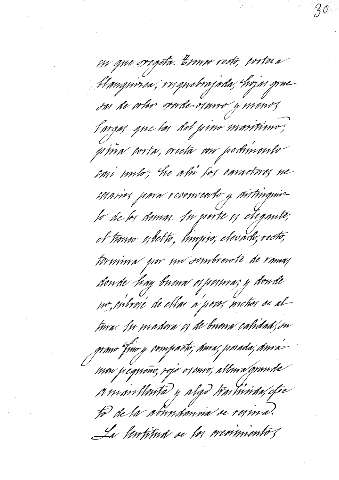 30
en que vegeta. Tronco recto, corteza
blanquizca, resquebrajada; hojas grue-
sas de color verde oscuro y menos
largas que las del pino maritimo;
piña corta, recta con pedúnculo
casi nulo; he ahí los caracteres ne-
cesarios para reconocerlo y distinguir-
lo de los demas. Su porte es elegante;
el tronco esbelto, limpio, elevado, recto,
termina por un sombrerete de ramas
donde hay buena espesura; y donde
no, cúbrese de ellas á pocos metros de al-
tura. Su madera es de buena calidad, su
grano fino y compacto, dura, pesada,
mas pequeño, rojo oscuro, albura grande
amarillenta y algo traslúcida, efec-
to de la abundancia de resina.
La lentitud de los crecimientos